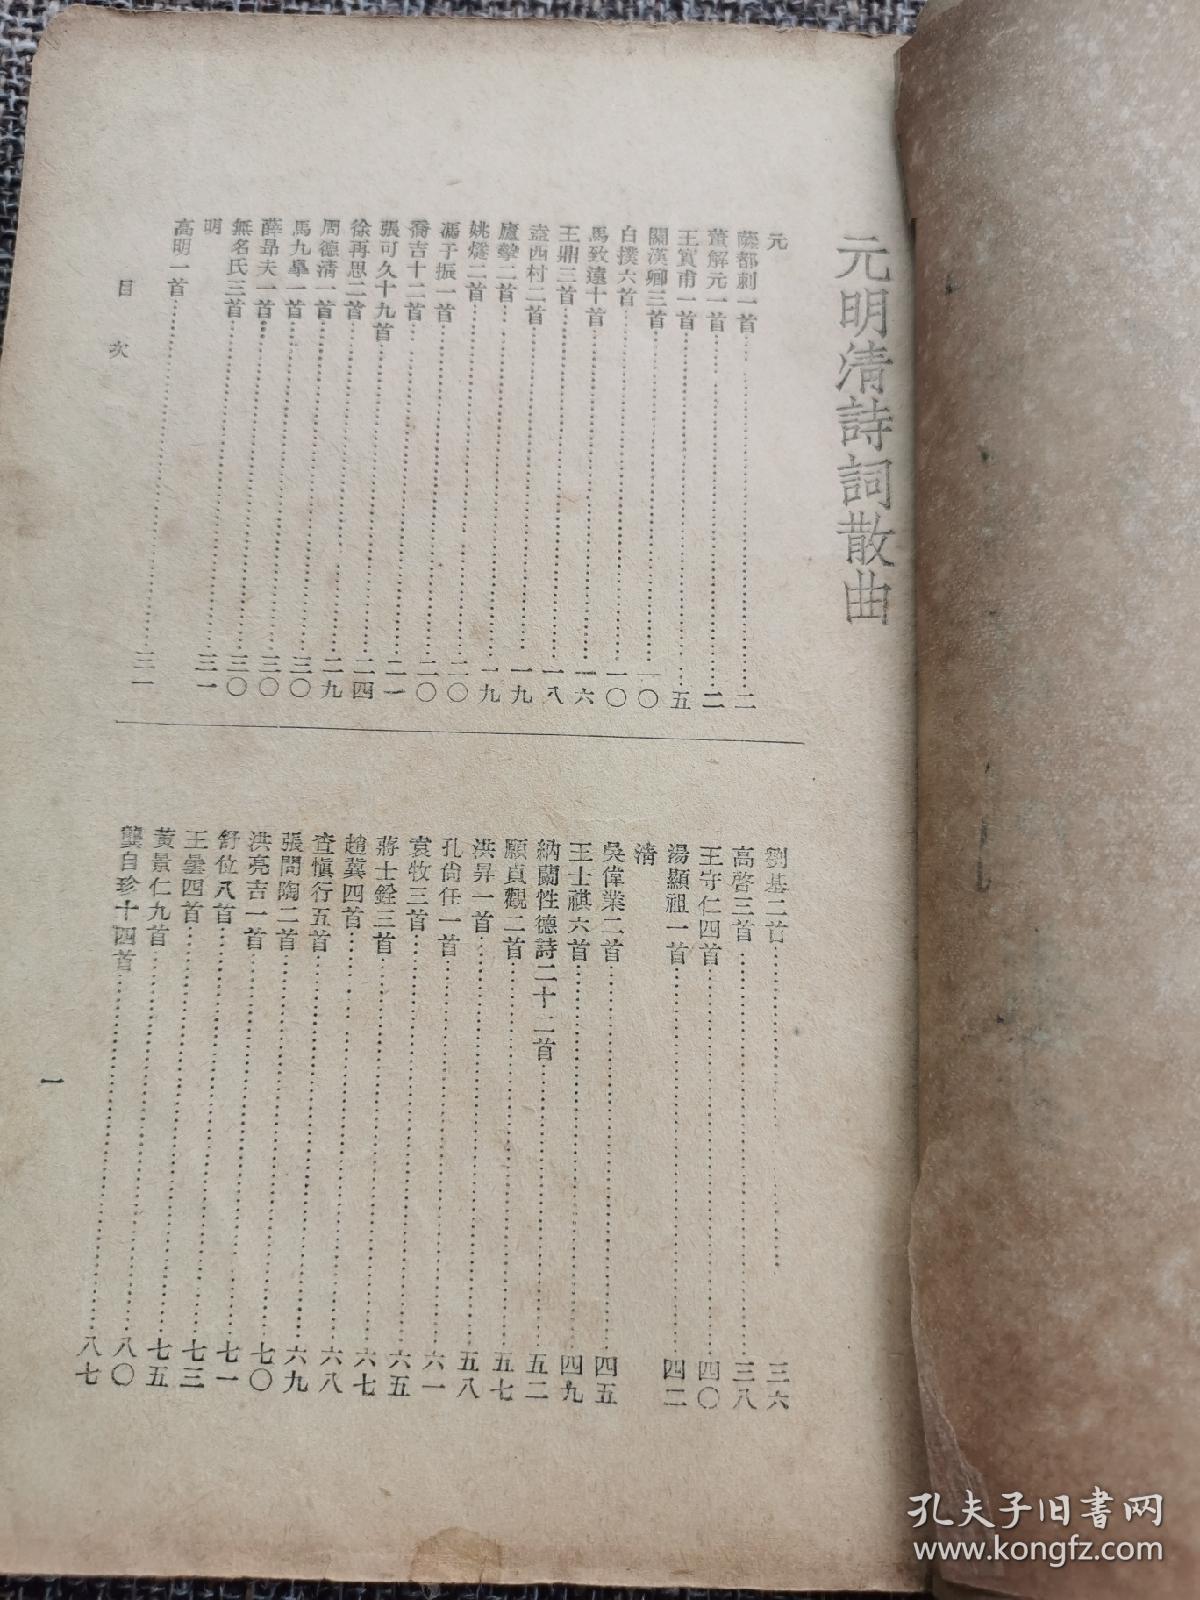 元明清詩詞散曲
元
薩都剌一首……二
董解元一首……二
王實甫一首……五
關漢卿三首……一〇
白撲六首……一〇
馬致遠十首……一六
王鼎三首……一八
盍西村二首……一九
盧摯二首……一九
姚燧二首……二〇
馮子振一首……二〇
喬吉十二首……二一
張可久十九首……二四
徐再思二首……二九
周德清一首……三〇
馬九皋一首……三〇
薛昂夫一首……三〇
無名氏三首……三一
明
高明一首……三一
劉基二首……三六
高啓三首……三八
王守仁四首……四〇
湯顯祖一首……四二
清
吳偉業二首……四五
王士祺六首……四九
納蘭性德詩二十二首……五二
顧貞觀二首……五七
洪昇一首……五八
孔尚任一首……六一
袁牧三首……六五
蔣士銓三首……六七
趙冀四首……六八
查愼行五首……六九
張問陶二首……七〇
洪亮吉一首……七一
舒位八首……七三
王曇四首……七五
黃景仁九首……八〇
龔自珍十四首……八七
目次
一
孔夫子旧书网
www.kongfz.com